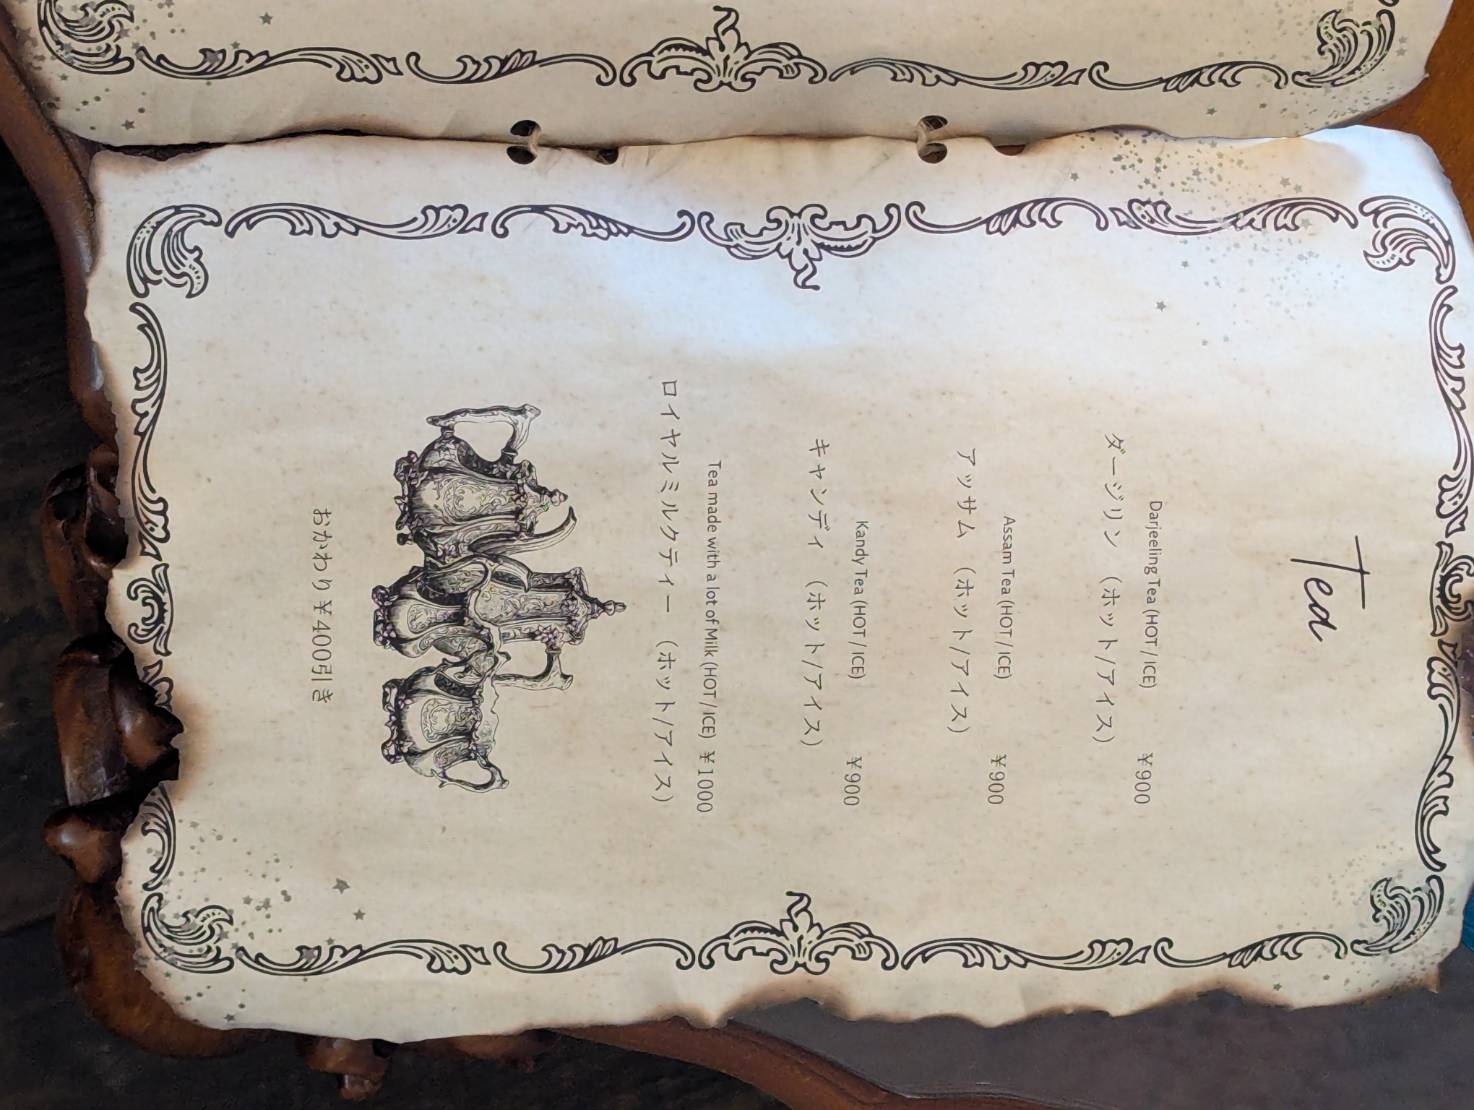 Tea
Darjeeling Tea (HOT / ICE) ¥900
ダージリン (ホット/アイス)
Assam Tea (HOT / ICE) ¥900
アッサム (ホット/アイス)
Kandy Tea (HOT / ICE) ¥900
キャンディ (ホット/アイス)
Tea made with a lot of Milk (HOT / ICE) ¥1000
ロイヤルミルクティー (ホット/アイス)
おかわり¥400引き